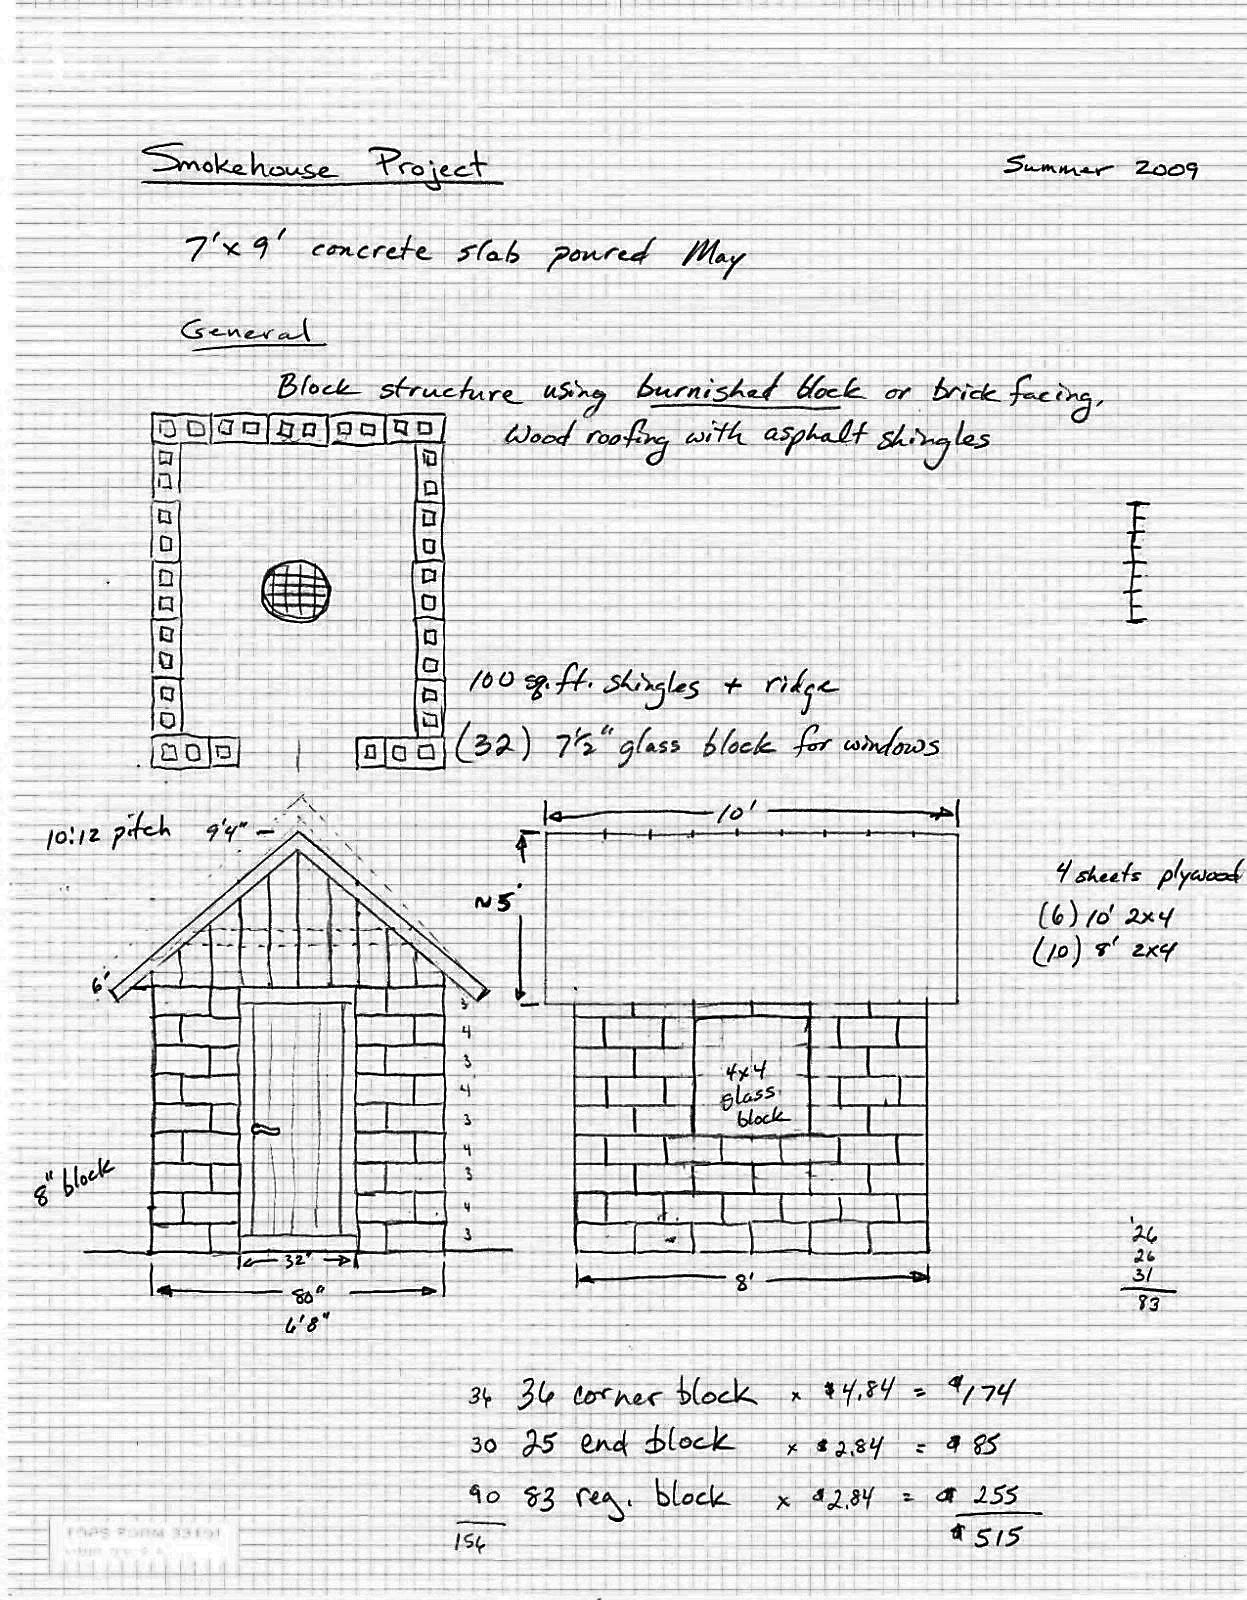 Smokehouse Project
Summer 2009
7'x9' concrete slab poured May
General
Block structure using burnished block or brick facing,
Wood roofing with asphalt shingles
100 sq.ft. shingles + ridge
(32) 7½" glass block for windows
10:12 pitch
9'4"
10'
~5'
4 sheets plywood
(6) 10' 2x4
(10) 8' 2x4
6'
3
4
3
4
3
4
3
4
3
4x4
glass
block
8" block
32"
80"
6'8"
8'
26
26
31
83
36 36 corner block x $4.84 = $174
30 25 end block x $2.84 = $85
90 83 reg. block x $2.84 = $255
156
$515